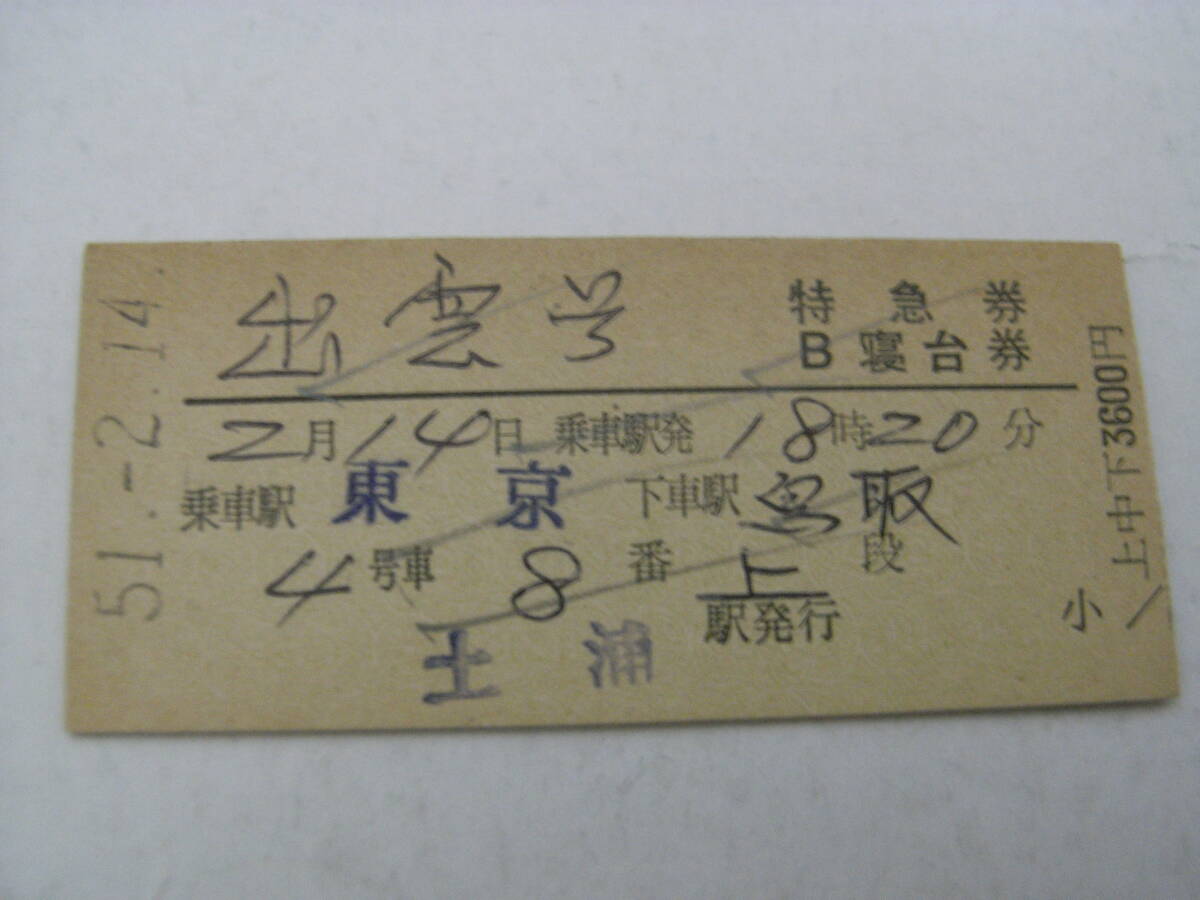 51.-2.14.
出雲号
特急券
B寝台券
2月14日 乗車駅発 18時20分
乗車駅 東京 下車駅 鳥取
4号車 8番 上段
土浦 駅発行
上中下3600円
小